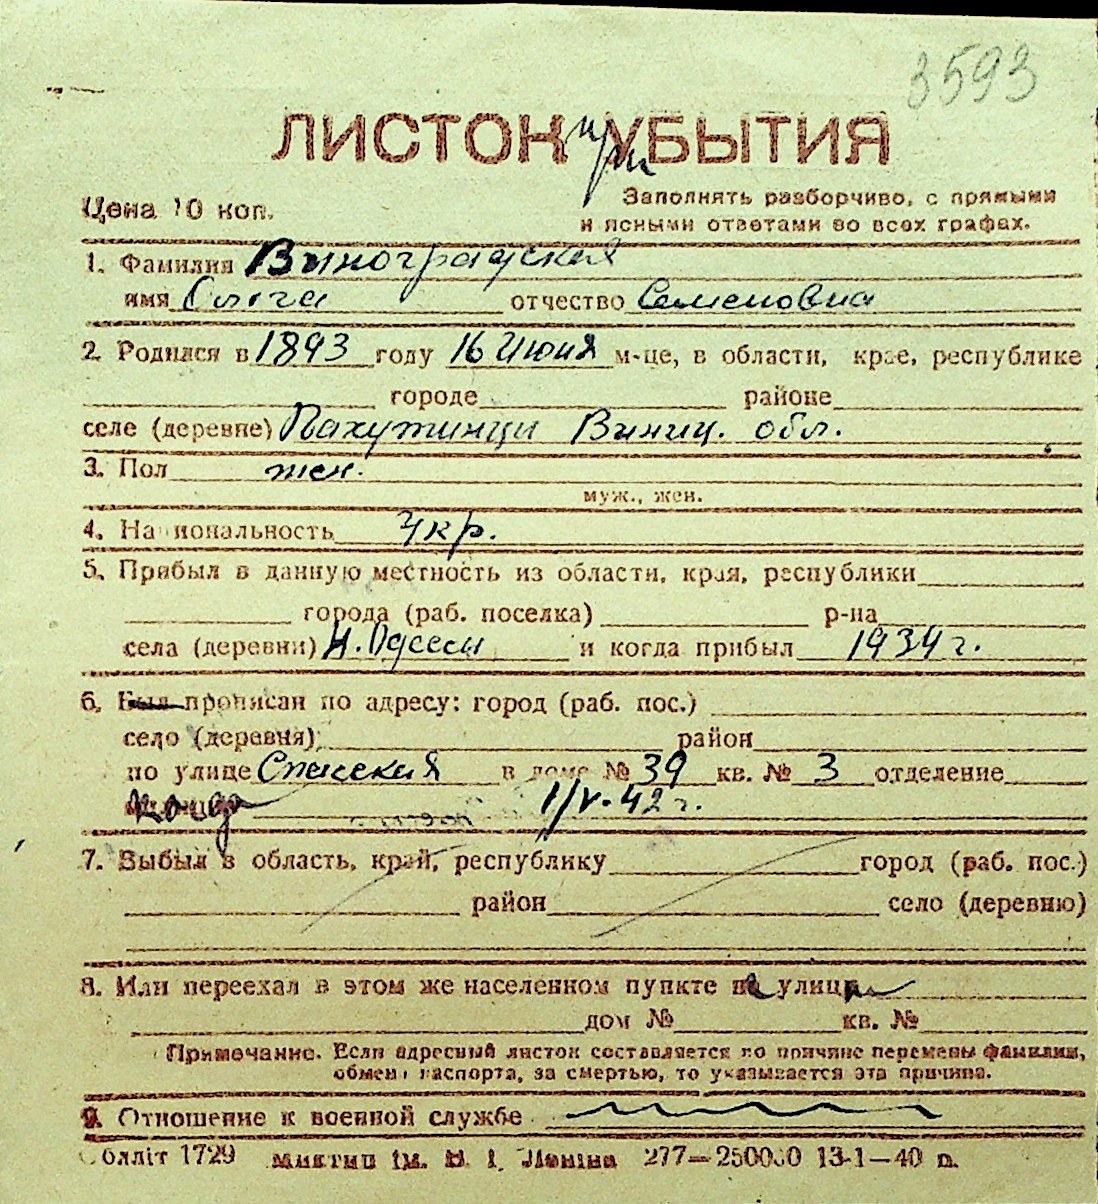 3593
ЛИСТОК при УБЫТИЯ
Цена 10 коп.
Заполнять разборчиво, с прямыми
и ясными ответами во всех графах.
1. Фамилия Виноградская
имя Ольга отчество Семеновна
2. Родился в 1893 году 16 Июня м-це, в области, крае, республике
городе районе
селе (деревне) Пахутинци Виниц. обл.
3. Пол жен.
муж., жен.
4. Национальность Укр.
5. Прибыл в данную местность из области, края, республики
города (раб. поселка) р-на
села (деревни) Н. Одессы и когда прибыл 1934 г.
6. Был прописан по адресу: город (раб. пос.)
село (деревня) район
по улице Спасская в доме № 39 кв. № 3 отделение
когда 1/V-42 г.
7. Выбыл в область, край, республику город (раб. пос.)
район село (деревню)
8. Или переехал в этом же населенном пункте на улицу
дом № кв. №
Примечание. Если адресный листок составляется по причине перемены фамилии,
обмена паспорта, за смертью, то указывается эта причина.
9. Отношение к военной службе
Облліт 1729 Миктип ім. В. І. Леніна 277—250000 13-1—40 р.